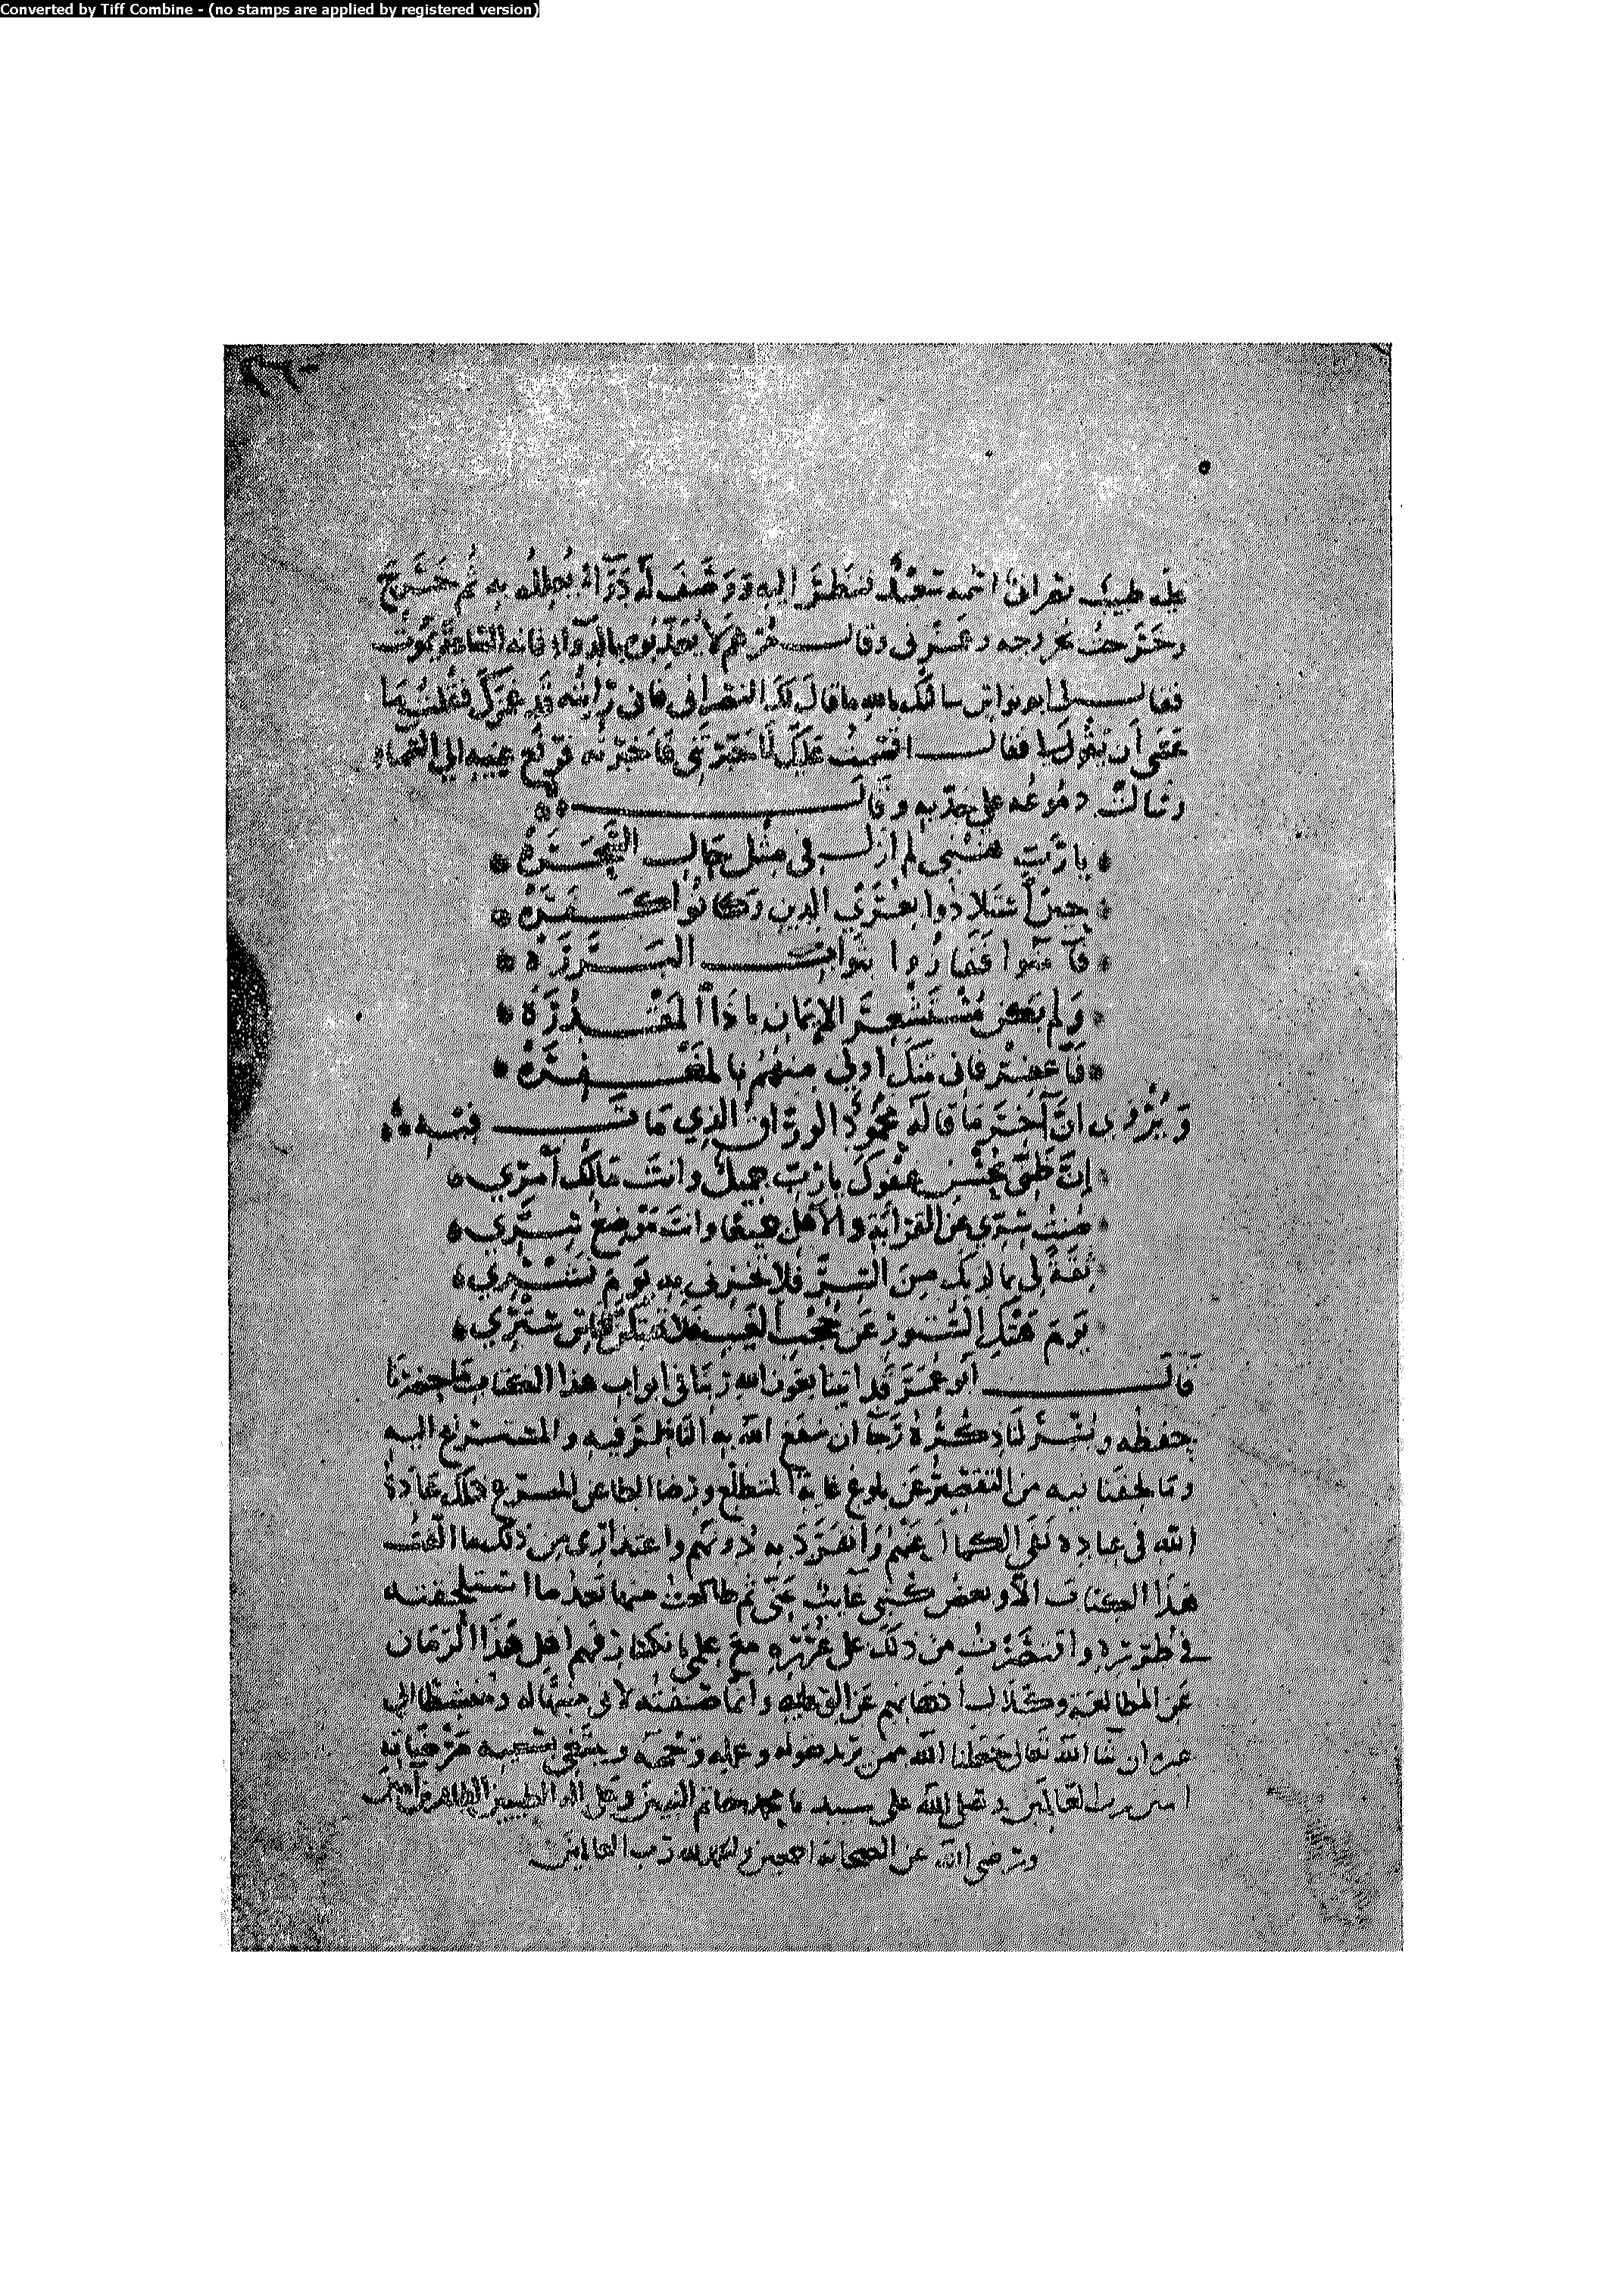 Converted by Tiff Combine - (no stamps are applied by registered version)
طبيب نصراني اسمه سعيد فنظر اليه ووصف له دواء به ثم خرج
وخرجت بخروجه وغمزني وقال لا تعذبوه بالدواء فانه الساعة يموت
فقال لي ابو نواس سالتك بالله ما قال لك النصراني فاني رايته قد غمزك فقلت ما
عسى أن يقول لي فقال اقسمت عليك لما خبرتني فأخبرته فرفع عينيه الى السماء
وسالت دموعه على خديه وقال
يا رب هبني لم ازل في مثل حال السحرة
حين استلاذوا بعرى الدين وكانوا كفرة
فآمنوا فصاروا ثواب البررة
ولم يكن مستشعر الإيمان ماذا المقدرة
فاغفر فاني منك أولى منهم بالمغفرة
ويروى أن آخر ما قاله محمود الوراق الذي مات فيه
إن ظني بحسن عفوك يا رب جميل وانت مالك أمري
صنت سري عن القرابة والأهل جميعا وانت موضع سري
ثقة لي بما لديك من الستر فلا تخزني به يوم نشري
يوم هتك الستور عن حجب الغيب فلا تهتكن للناس ستري
قال أبو عمر قد اتينا بعون الله ربنا في ابواب هذا الكتاب ما حضرنا
حفظه وتيسر لنا ذكره رجا ان ينفع الله به الناظر فيه والمستريح اليه
وما لحقنا فيه من التقصير عن بلوغ غاية المتطلع ورضا الطاعن فتلك عادة
الله في عباده نفي الكمال عنهم وانفرد به دونهم واعتذاري من ذلك ما الفت
هذا الكتاب الا وبعض كتبي غائب عني ثم طالعت منها بعد ما استلحقته
في طرره واقتصرت من ذلك على غرره مع علمي بانكار فهم اهل هذا الزمان
عن المطالعة وكلال أذهانهم عن وانما صنفته لاني له ومنشطا الى
غيره ان شا الله تعالى جعلنا الله ممن يريد بقوله وعمله وجهه ويبتغي مرضاته
امين رب العالمين وصلى الله على سيدنا محمد خاتم النبيين وعلى اله الطيبين الطاهرين
ورضي الله عن الصحابة اجمعين والحمد لله رب العالمين